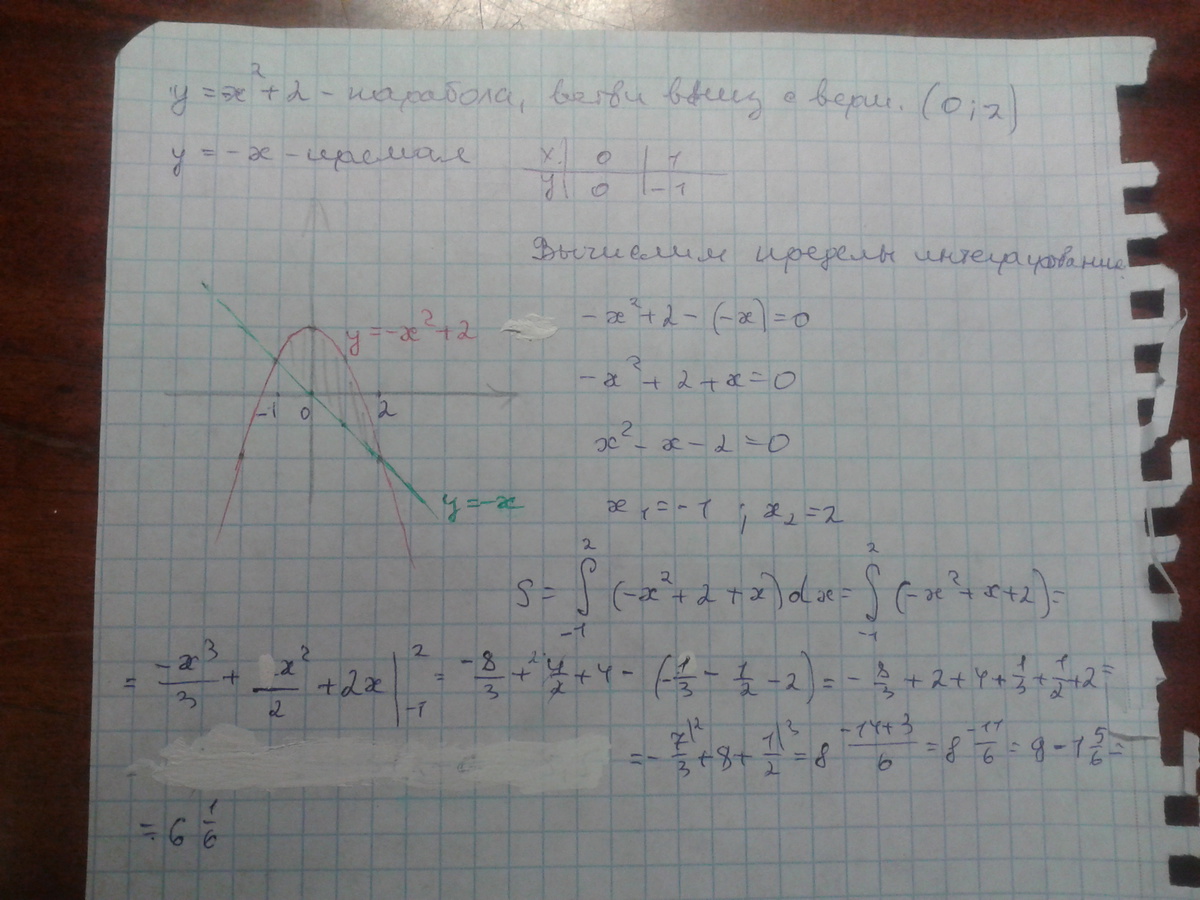 y = -x² + 2 - парабола, ветви вниз с верш. (0; 2)
y = -x - прямая
x | 0 | 1
y | 0 | -1
Вычислим пределы интегрирование
-x² + 2 - (-x) = 0
y = -x² + 2
-x² + 2 + x = 0
-1 0 2
x² - x - 2 = 0
y = -x
x₁ = -1 ; x₂ = 2
S = ∫₋₁² (-x² + 2 + x) dx = ∫₋₁² (-x² + x + 2) =
= -x³/3 + x²/2 + 2x |₋₁² = -8/3 + 4/2 + 4 - (-1/3 - 1/2 - 2) = -8/3 + 2 + 4 + 1/3 + 1/2 + 2 =
= -7/3 |² + 8 + 1/2 |³ = 8 (-14+3)/6 = 8 -11/6 = 8 - 1 5/6 =
= 6 1/6